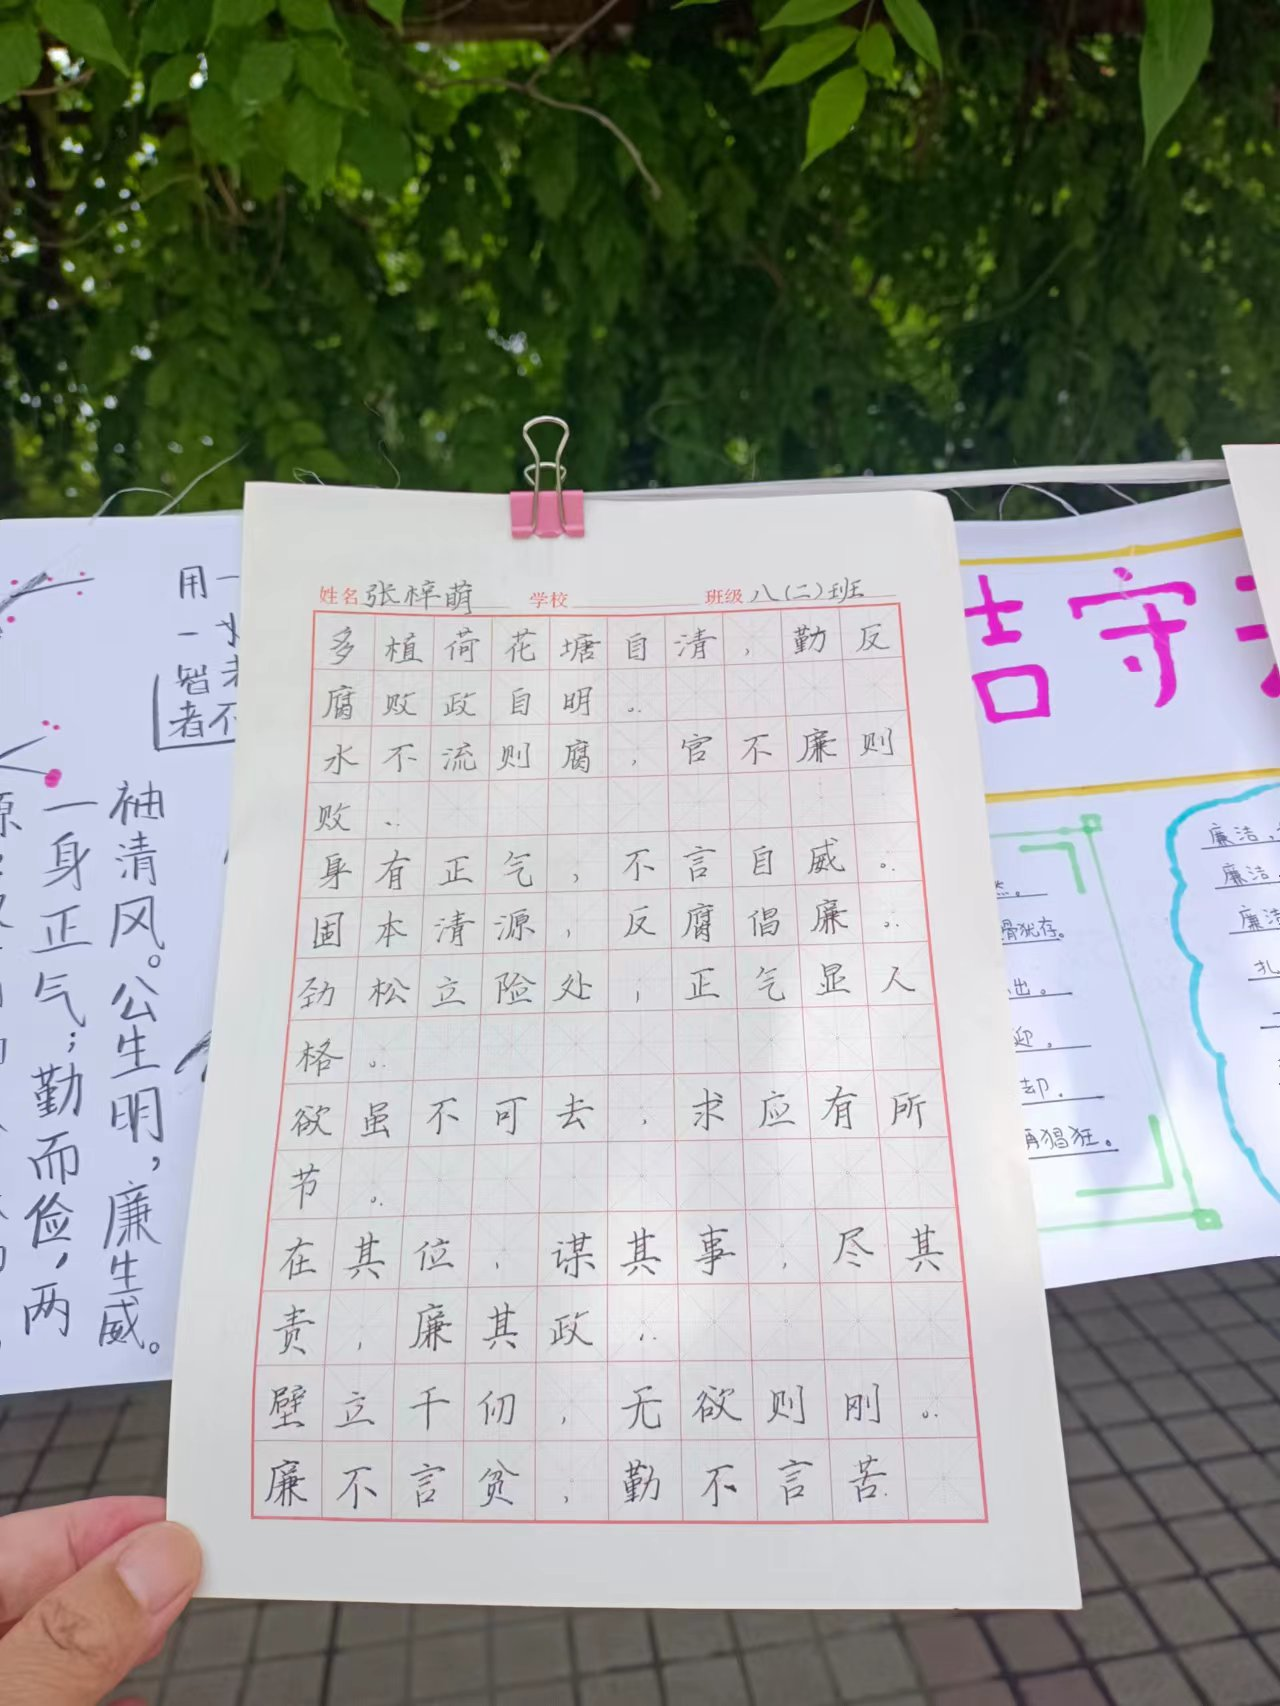 姓名 张梓萌 学校 班级 八(二)班
多植荷花塘自清，勤反
腐败政自明。
水不流则腐，官不廉则
败.
身有正气，不言自威。
固本清源，反腐倡廉。
劲松立险处，正气显人
格。
欲虽不可去，求应有所
节。
在其位，谋其事，尽其
责，廉其政.
壁立千仞，无欲则刚。
廉不言贫，勤不言苦.
用一
一
智者
者不
袖清风。公生明，廉生威。
一身正气；勤而俭，两
洁守
廉洁，
廉洁，
廉洁
滑犹存。
出。
迎，
却，
再猖狂。